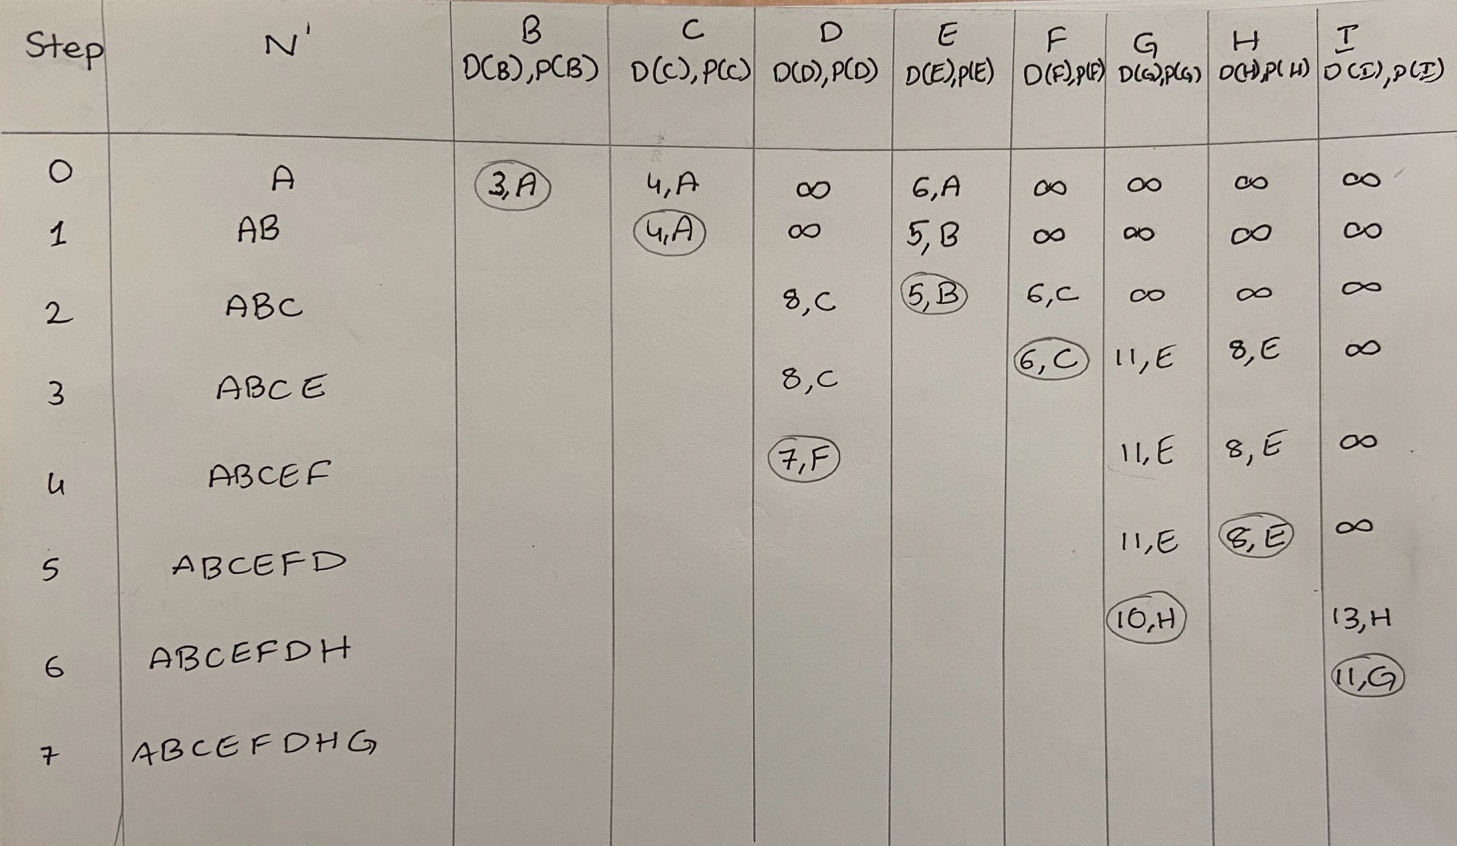 Step N' B C D E F G H I
D(B),P(B) D(C),P(C) D(D),P(D) D(E),P(E) D(F),P(F) D(G),P(G) D(H),P(H) D(I),P(I)
0 A 3,A 4,A ∞ 6,A ∞ ∞ ∞ ∞
1 AB 4,A ∞ 5,B ∞ ∞ ∞ ∞
2 ABC 8,C 5,B 6,C ∞ ∞ ∞
3 ABCE 8,C 6,C 11,E 8,E ∞
4 ABCEF 7,F 11,E 8,E ∞
5 ABCEFD 11,E 8,E ∞
6 ABCEFDH 10,H 13,H
7 ABCEFDHG 11,G